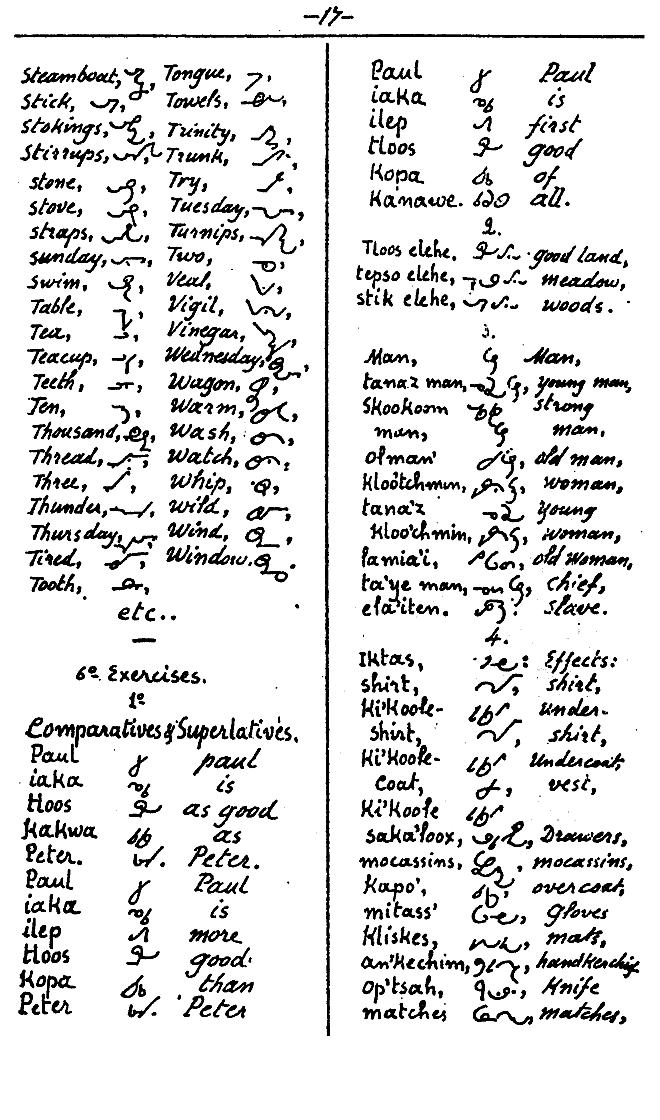 —17—
Steamboat, Tongue,
Stick, Towels,
Stokings, Trinity,
Stirrups, Trunk,
stone, Try,
stove, Tuesday,
straps, Turnips,
sunday, Two,
Swim, Veal,
Table, Vigil,
Tea, Vinegar,
Teacup, Wednesday,
Teeth, Wagon,
Ten, Warm,
Thousand, Wash,
Thread, Watch,
Three, Whip,
Thunder, wild,
Thursday, Wind,
Tired, Window.
Tooth,
etc..
6º Exercises.
1º
Comparatives & Superlatives.
Paul paul
iaka is
tloos as good
kakwa as
Peter. Peter.
Paul Paul
iaka is
ilep more
tloos good
Kopa than
Peter Peter
Paul Paul
iaka is
ilep first
tloos good
Kopa of
Kanawe. all.
2.
Tloos elehe, good land,
tepso elehe, meadow,
stik elehe, woods.
3.
Man, Man,
tanaz man, young man,
Skookoom strong
man, man,
olman old man,
klootchmin, woman,
tana'z young
kloo'chmin, woman,
lamia'i, old Woman,
ta'ye man, chief,
ela'iten. slave.
4.
Iktas, Effects:
shirt, shirt,
Ki'Koole- under-
shirt, shirt,
Ki'Koole- Undercoat,
Coat, vest,
Ki'Koole
saka'loox, Drawers,
mocassins, mocassins,
Kapo', overcoat,
mitass' Gloves
Kliskes, mats,
an'Kechim, handkerchif
op'tsah, Knife
matches matches,